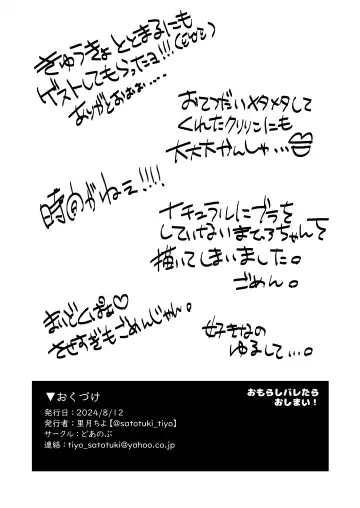 きゅうきょととまるにも
ゲストしてもらったヨ!!!
ありがとおぉぉ....
おてつだいメタメタして
くれたクリリンにも
大大大かんしゃ...
時間がねえ!!!!
ナチュラルにブラを
していないまひろちゃんを
描いてしまいました。
ごめん。
させすぎもごめんじゃん。
好きなの
ゆるして...。
▼おくづけ
発行日：2024/8/12
発行者：里月ちよ【@satotuki_tiyo】
サークル：どあのぶ
連絡：tiyo_satotuki@yahoo.co.jp
おもらしバレたら
おしまい！